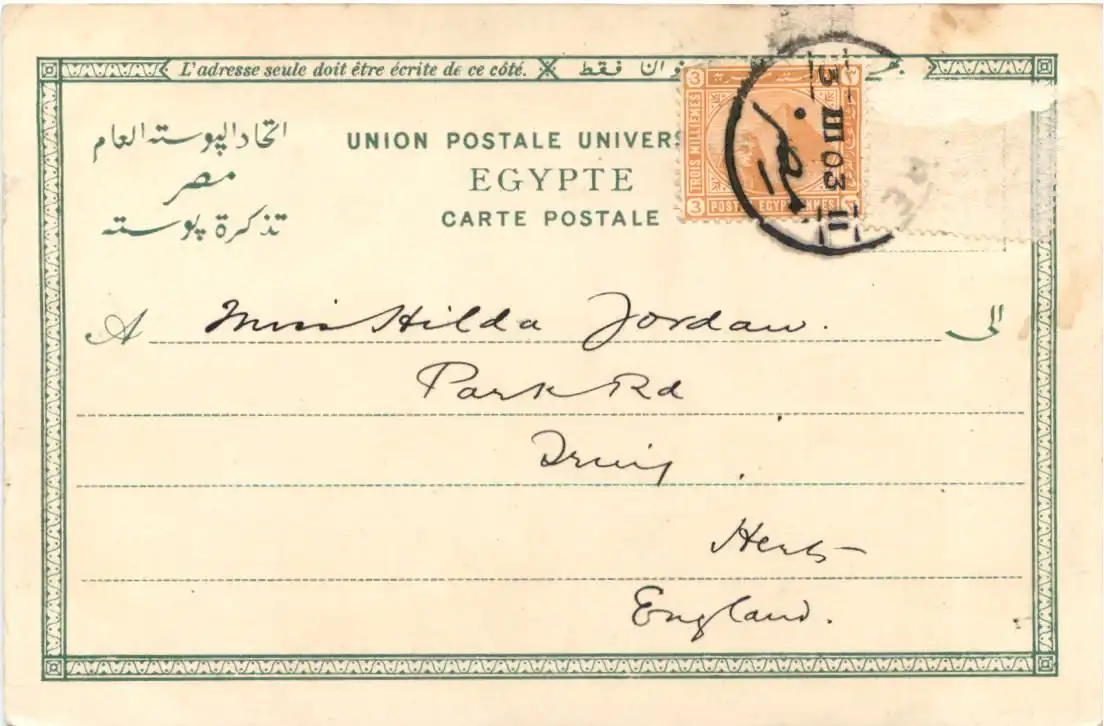 L'adresse seule doit être écrite de ce côté.
فقط
اتحاد البوسته العام
مصر
تذكرة بوسته
UNION POSTALE UNIVERS
EGYPTE
CARTE POSTALE
3 3
TROIS MILLIEMES
3
POSTES EGYPTIENNES
3 III 03 II
32
A Miss Hilda Jordan. الى
Park Rd
Herts
England.